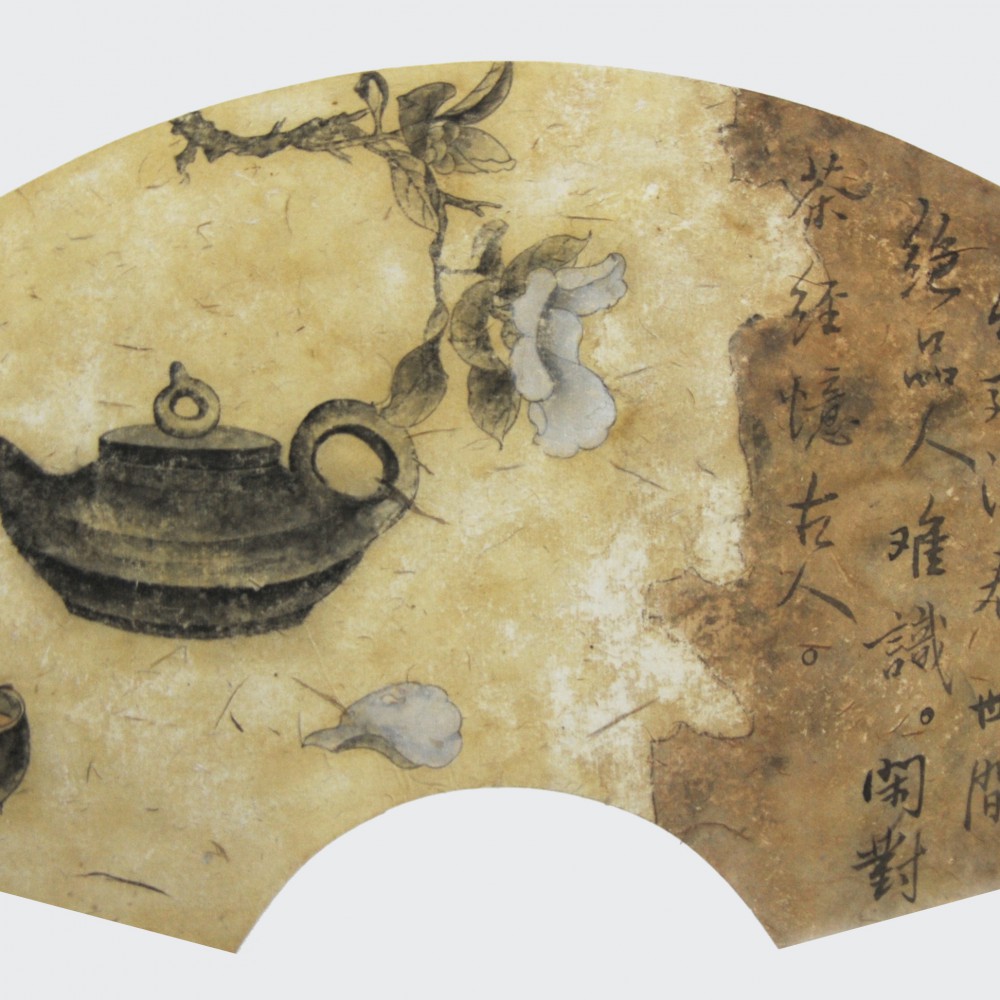 世間
絶品人难識。閑對
茶經憶古人。